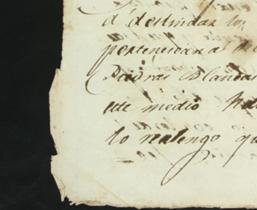 á deslindar los
pertenecian al
Piedras Blancas
este medio
lo realengo qu